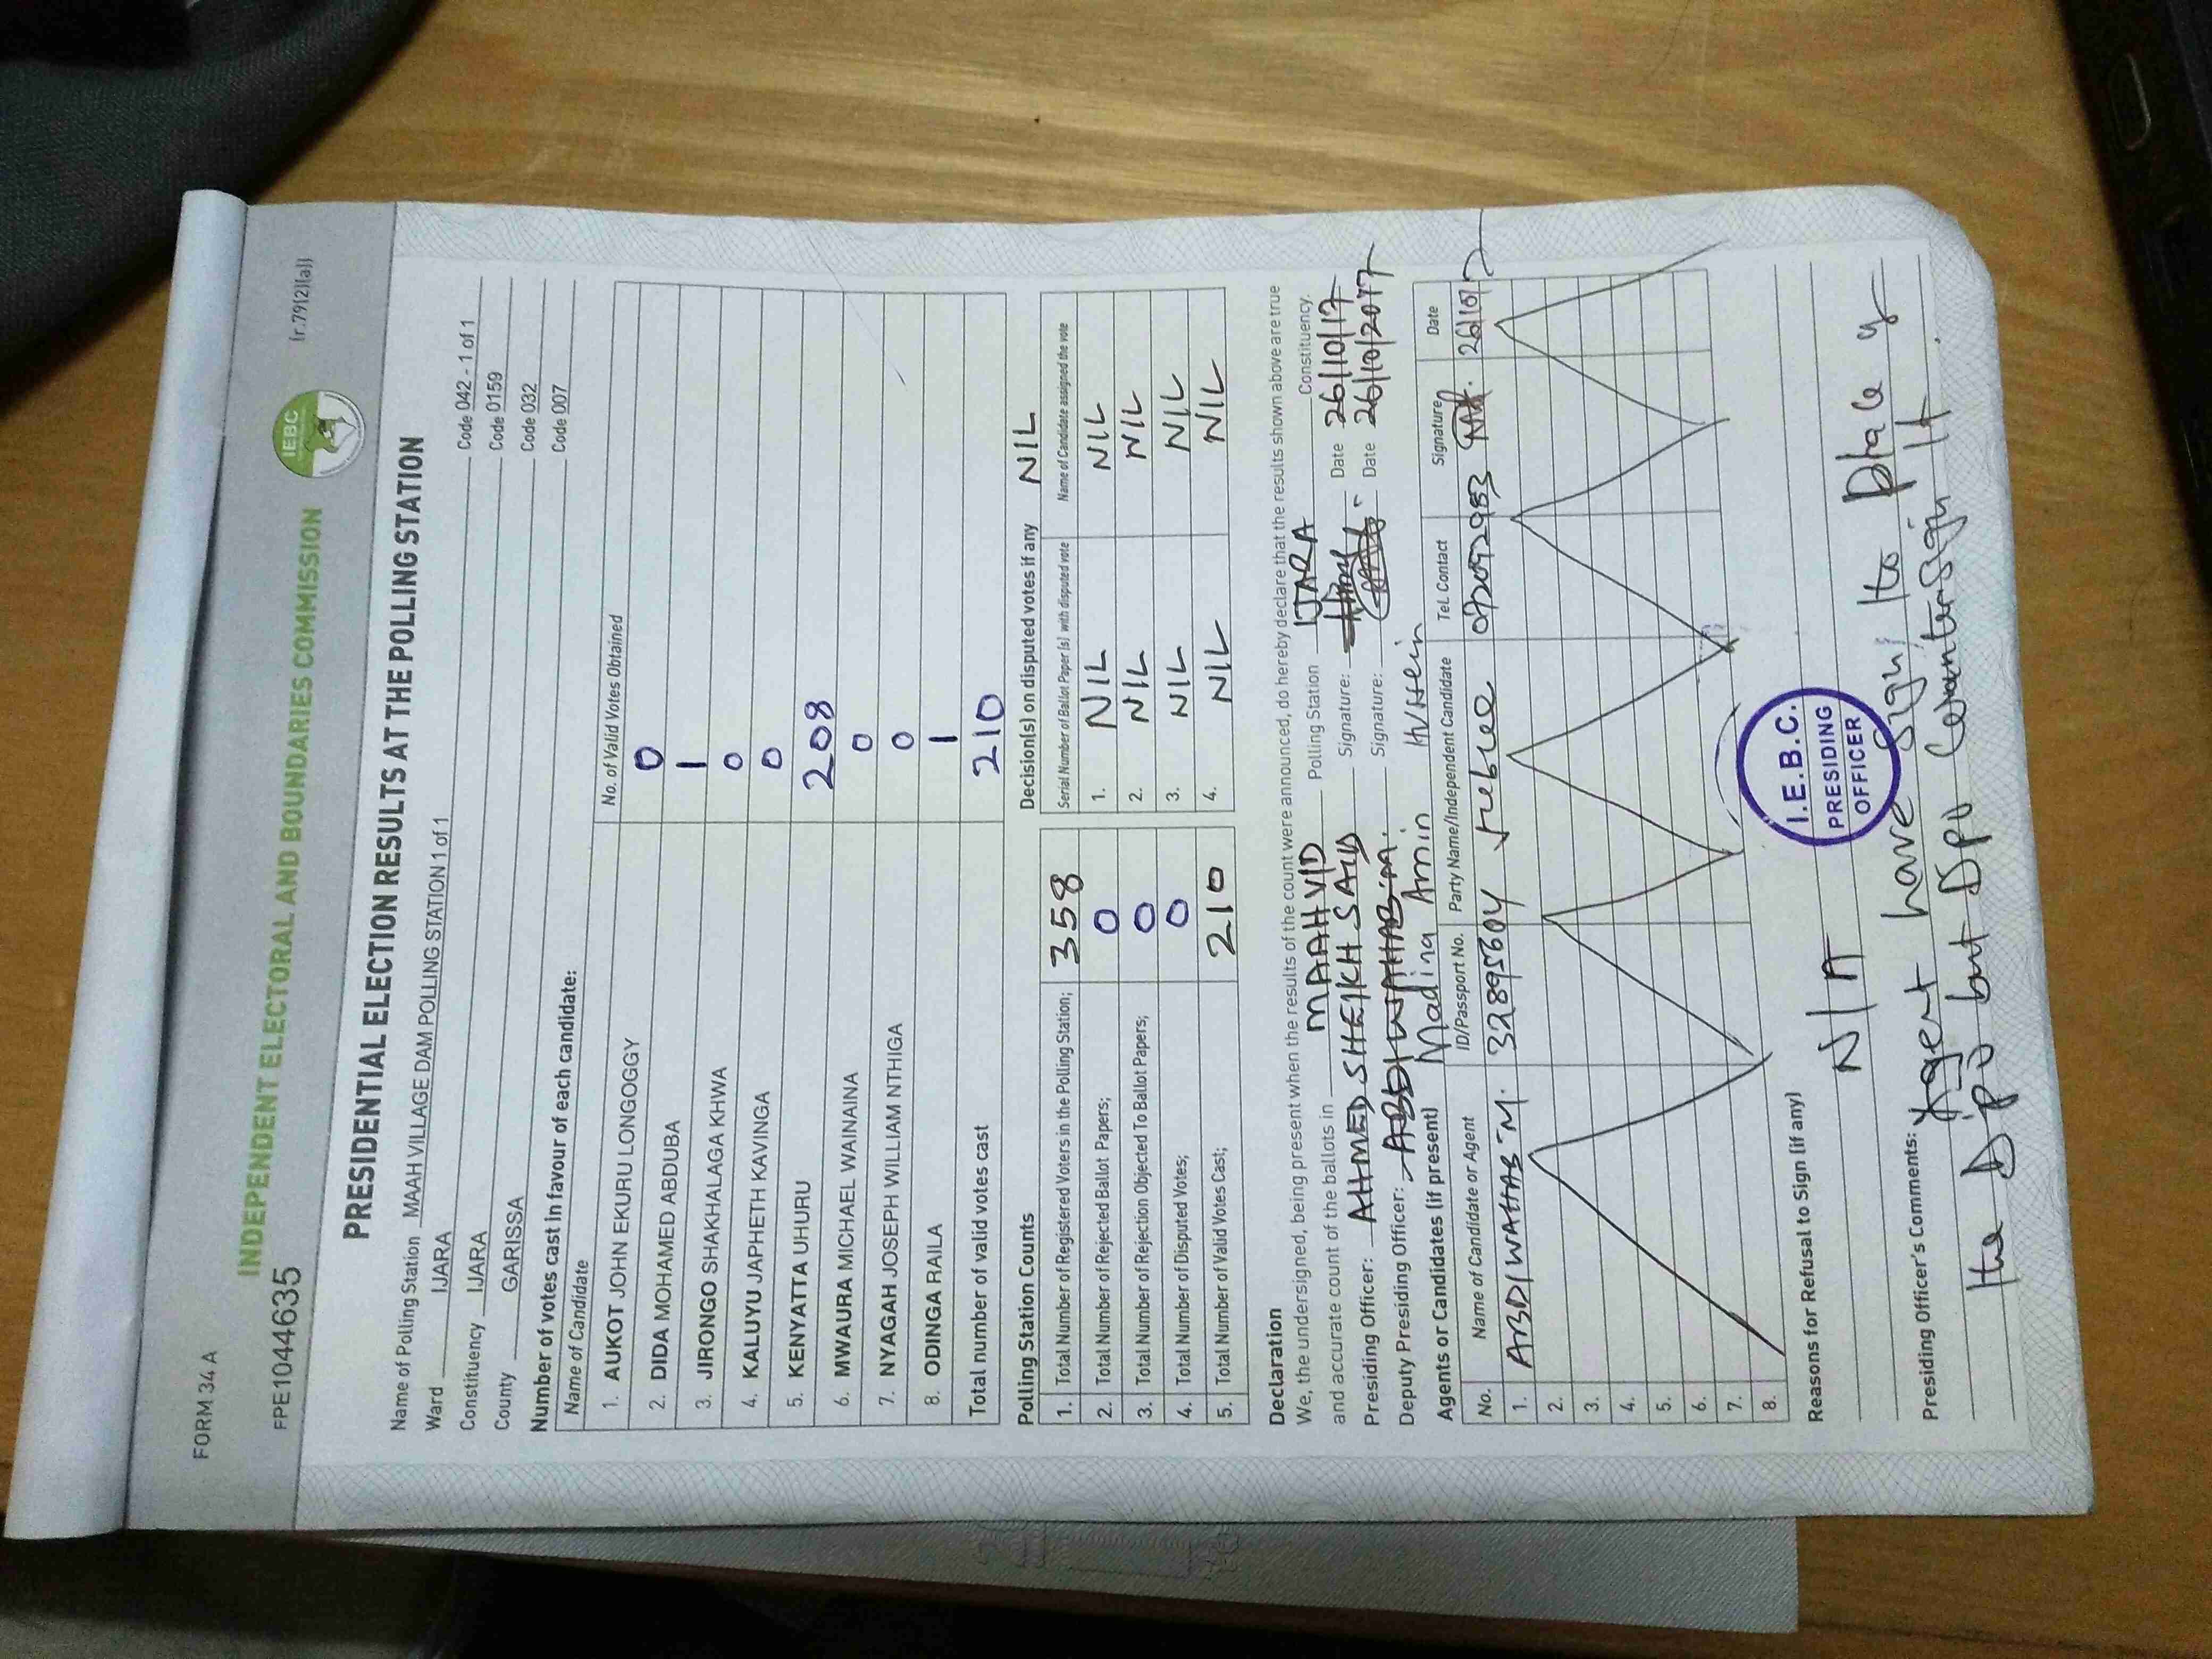 FORM 34 A
(r.79(2)(a))
FPE1044635
INDEPENDENT ELECTORAL AND BOUNDARIES COMMISSION
IEBC
PRESIDENTIAL ELECTION RESULTS AT THE POLLING STATION
Name of Polling Station MAAH VILLAGE DAM POLLING STATION 1 of 1 Code 042 - 1 of 1
Ward IJARA Code 0159
Constituency IJARA Code 032
County GARISSA Code 007
Number of votes cast in favour of each candidate:
Name of Candidate No. of Valid Votes Obtained
1. AUKOT JOHN EKURU LONGOGGY 0
2. DIDA MOHAMED ABDUBA 1
3. JIRONGO SHAKHALAGA KHWA 0
4. KALUYU JAPHETH KAVINGA 0
5. KENYATTA UHURU 208
6. MWAURA MICHAEL WAINAINA 0
7. NYAGAH JOSEPH WILLIAM NTHIGA 0
8. ODINGA RAILA 1
Total number of valid votes cast 210
Polling Station Counts
1. Total Number of Registered Voters in the Polling Station; 358
2. Total Number of Rejected Ballot Papers; 0
3. Total Number of Rejection Objected To Ballot Papers; 0
4. Total Number of Disputed Votes; 0
5. Total Number of Valid Votes Cast; 210
Decision(s) on disputed votes if any NIL
Serial Number of Ballot Paper (s) with disputed vote Name of Candidate assigned the vote
1. NIL NIL
2. NIL NIL
3. NIL NIL
4. NIL NIL
Declaration
We, the undersigned, being present when the results of the count were announced, do hereby declare that the results shown above are true
and accurate count of the ballots in MAAH V/D Polling Station IJARA Constituency.
Presiding Officer: AHMED SHEIKH SAID Signature: Date 26/10/17
Deputy Presiding Officer: ABDIWAHAB M. Signature: Date 26/10/2017
Madina Amin Hussein
Agents or Candidates (if present)
No. Name of Candidate or Agent ID/Passport No. Party Name/Independent Candidate Tel. Contact Signature Date
1. ABDIWAHAB M. 32895604 Jubilee 26/10/17
2.
3.
4.
5.
6.
7.
8.
Reasons for Refusal to Sign (if any)
N/A
I.E.B.C.
PRESIDING
OFFICER
Presiding Officer's Comments: Agent have sign the place of
the Dpo but Dpo countersign it.